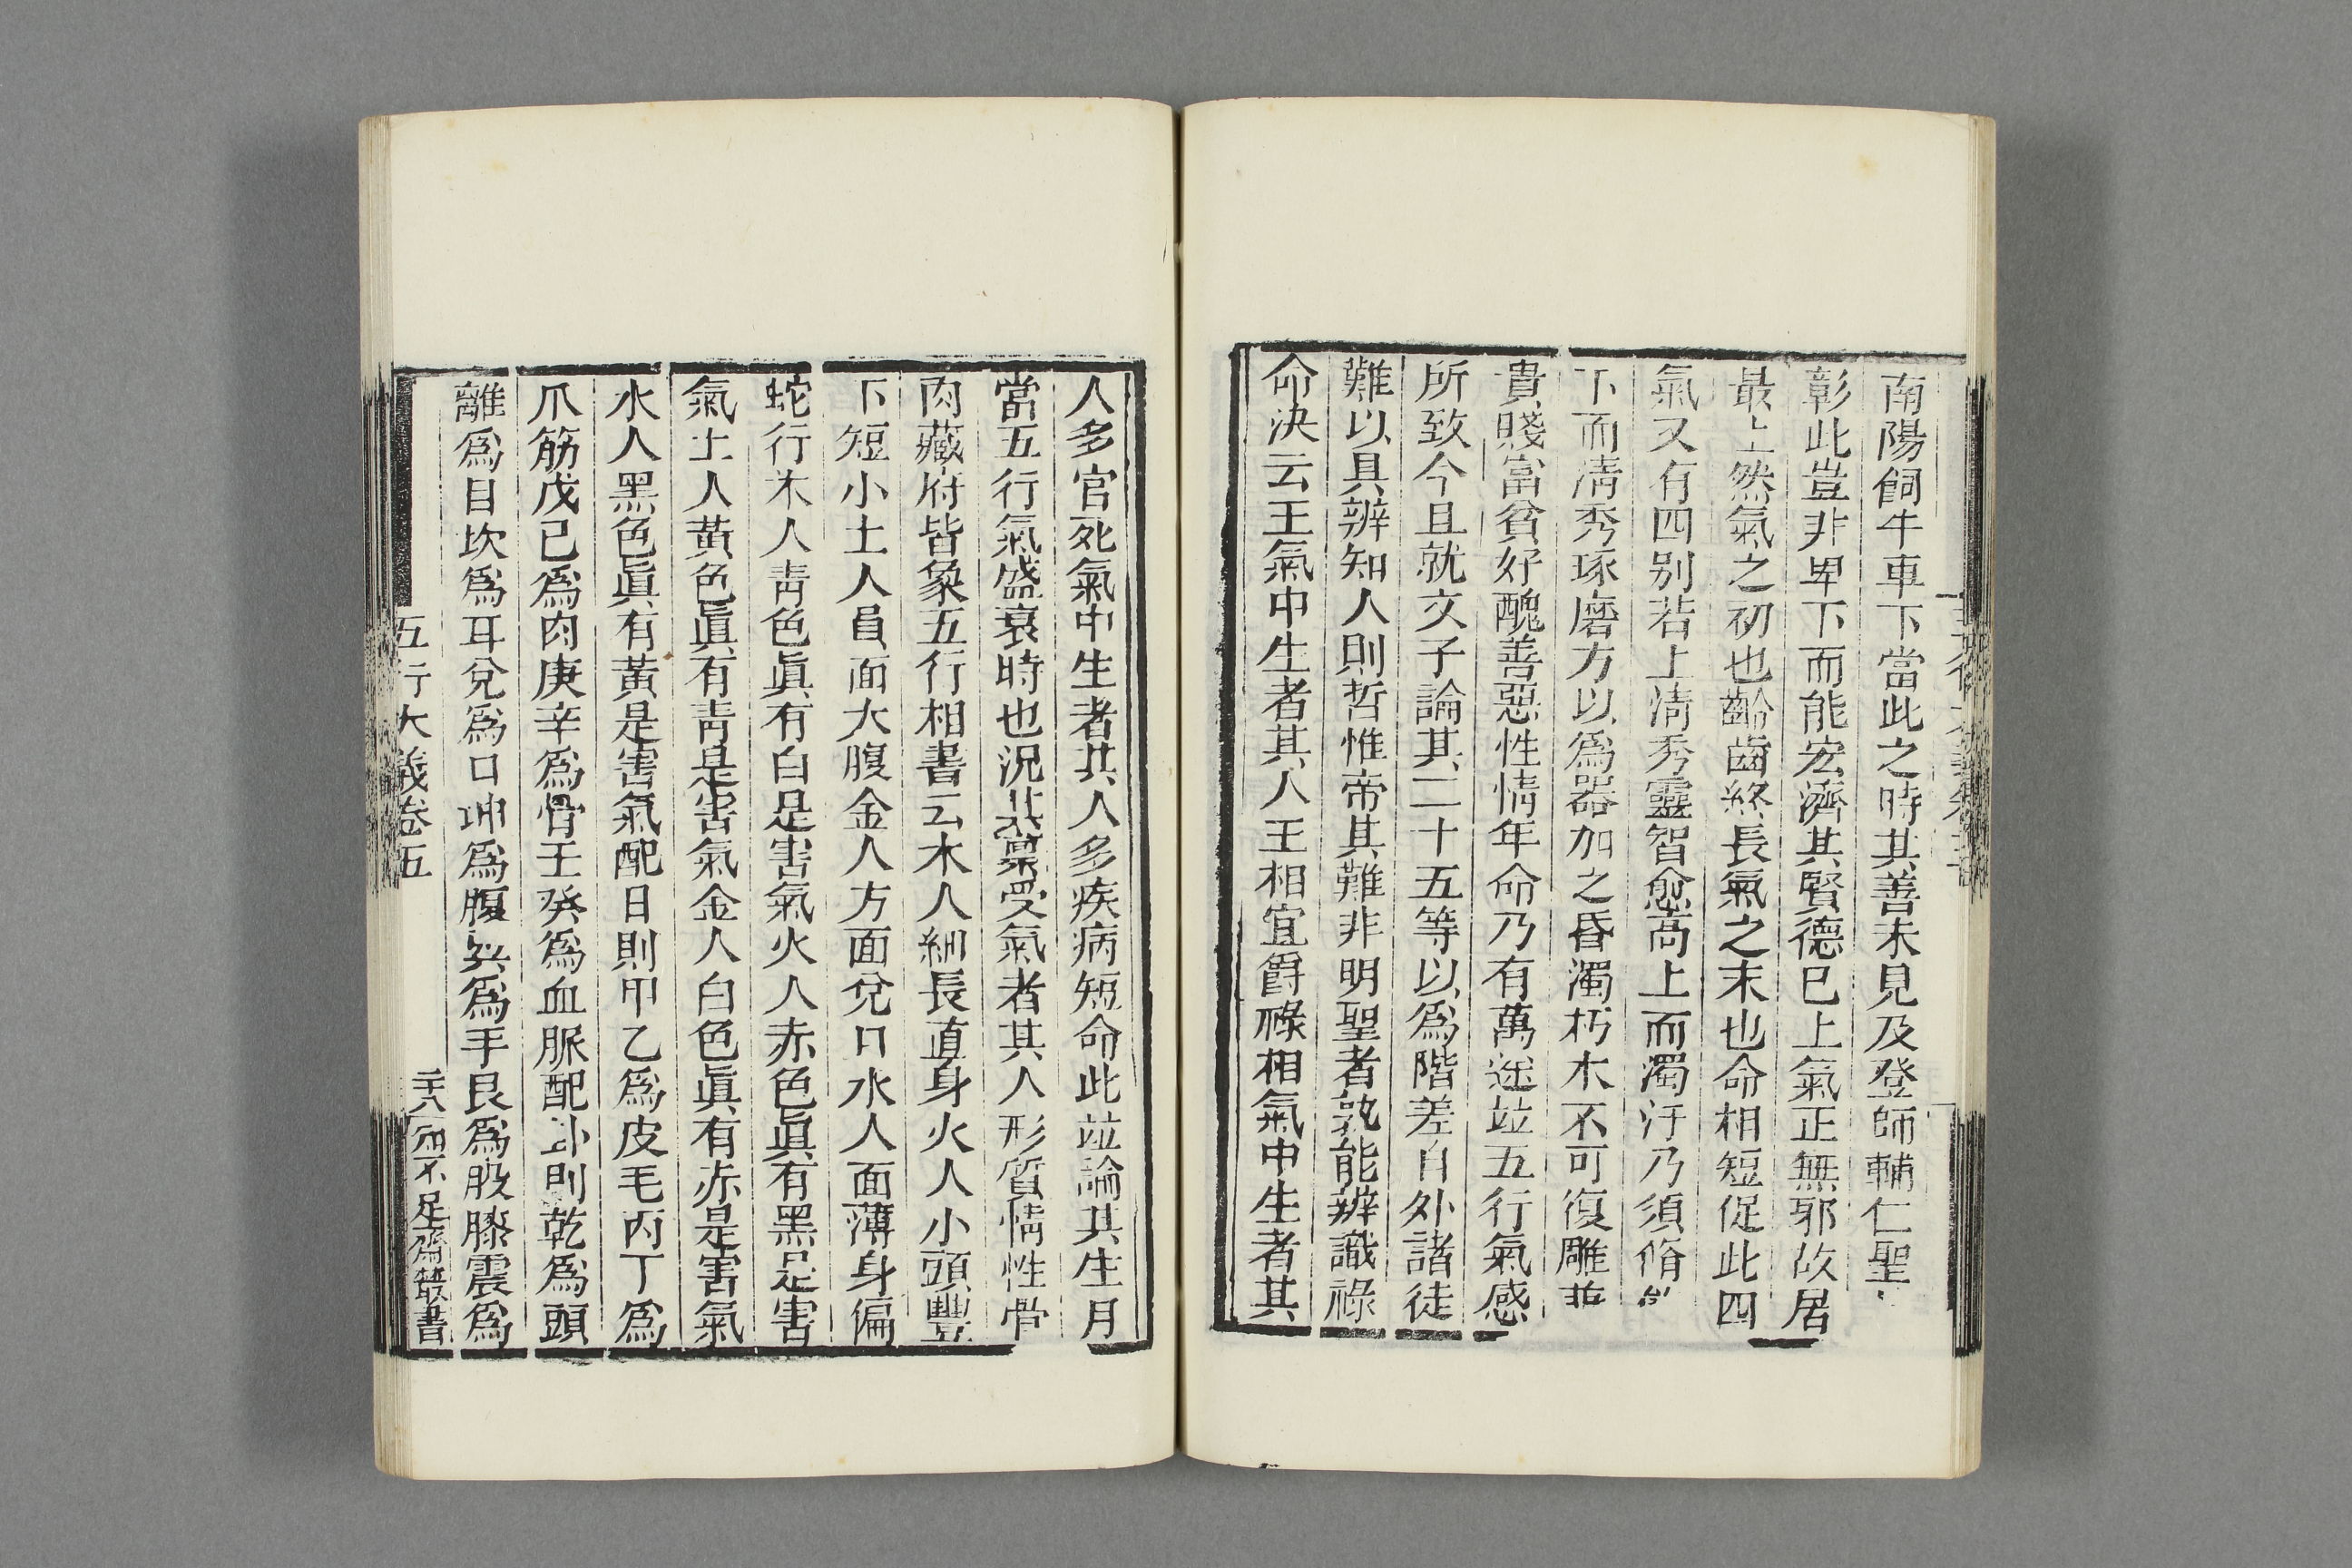 南陽飼牛車下當此之時其善未見及登師輔仁聖
彰此豈非卑下而能宏濟其賢德巳上氣正無邪故居
最上然氣之初也齡齒終長氣之末也命相短促此四
氣又有四别若上淸秀靈智愈高上而濁汙乃須脩
下而淸秀琢磨方以爲器加之昏濁朽木不可復雕並
貴賤富貧好醜善惡性情年命乃有萬途竝五行氣感
所致今且就文子論其二十五等以爲階差自外諸徒
難以具辨知人則哲惟帝其難非明聖者孰能辨識祿
命決云王氣中生者其人王相宜爵祿相氣中生者其
人多官死氣中生者其人多疾病短命此竝論其生月
當五行氣盛衰時也況其稟受氣者其人形質情性骨
肉藏府皆象五行相書云木人細長直身火人小頭豐
下短小土人員面大腹金人方面兌口水人面薄身偏
蛇行木人靑色眞有白是害氣火人赤色眞有黑是害
氣土人黃色眞有靑是害氣金人白色眞有赤是害氣
水人黑色眞有黃是害氣配日則甲乙爲皮毛丙丁爲
爪筋戊己爲肉庚辛爲骨壬癸爲血脈配卦則乾爲頭
離爲目坎爲耳兌爲口坤爲腹巽爲手艮爲股膝震爲
五行大義卷五 二十八 知不足齋叢書